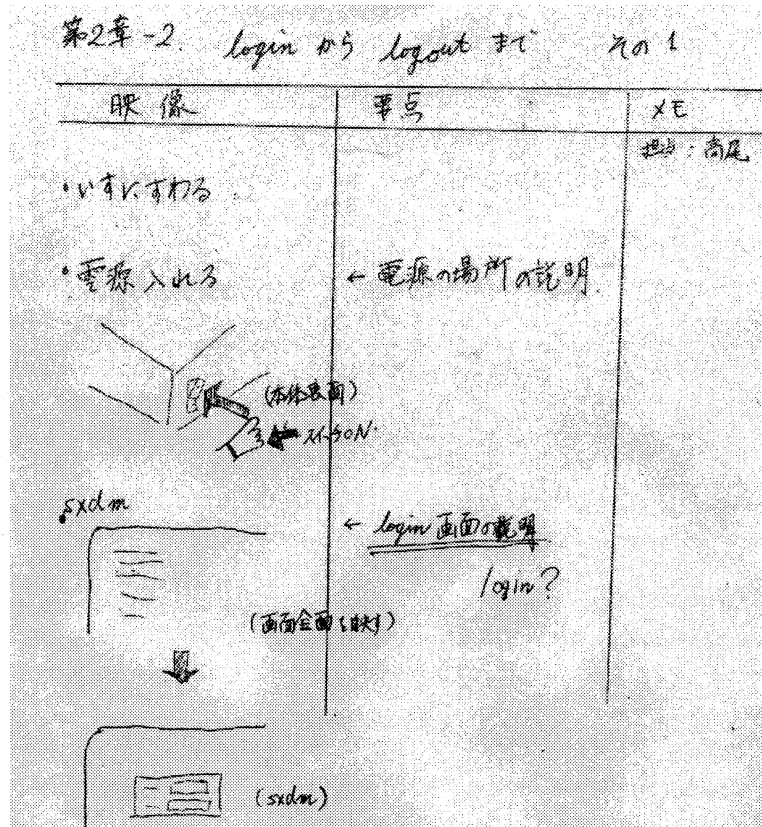 第2章-2. login から logout まで その1
映像 要点 メモ
担当:高尾
・いすにすわる
・電源入れる ← 電源の場所の説明
(本体表面)
スイッチON
・sxdm
← login 画面の説明
login?
(画面全面を映す)
(sxdm)